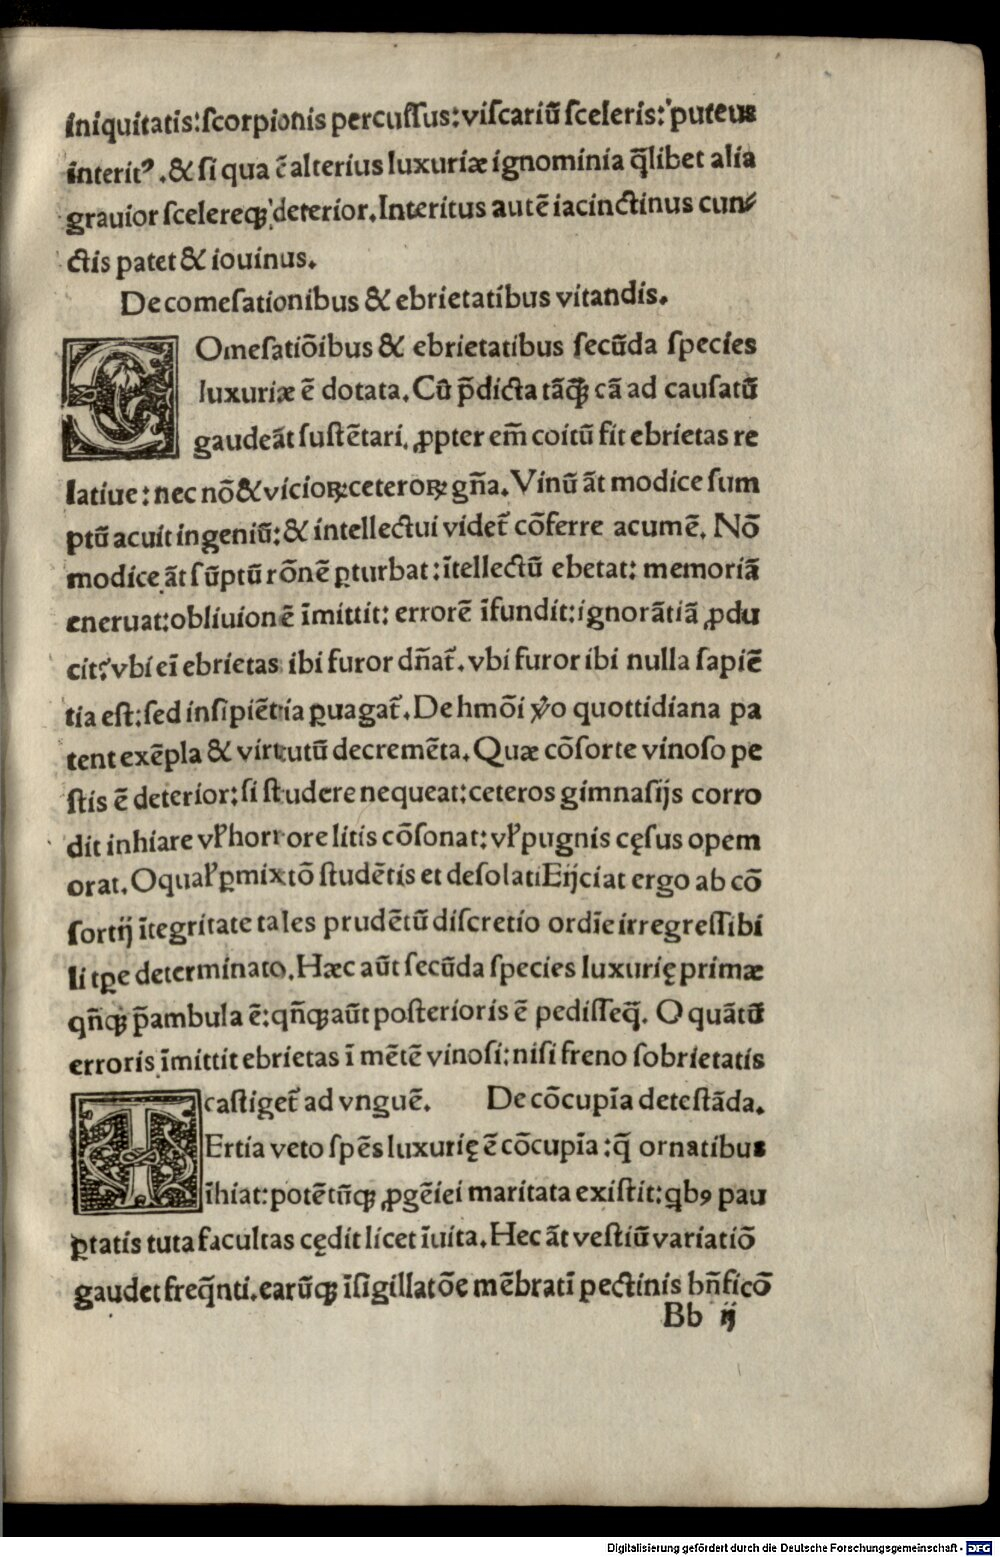 iniquitatis:ſcorpionis percuſſus:viſcariū ſceleris:puteus
interitꝰ.& ſi qua ē alterius luxuriæ ignominia q̄libet alia
grauior ſcelereqꝫ deterior.Interitus autē iacinctinus cun⸗
ctis patet & iouinus.
De comeſationibus & ebrietatibus vitandis.
COmeſatiōibus & ebrietatibus ſecūda ſpecies
luxuriæ ē dotata.Cū p̄dicta tāqꝫ cā ad cauſatū
gaudeāt ſuſtētari.ꝓpter em̄ coitū fit ebrietas re
latiue:nec nō & vicioꝝ ceteroꝝ gn̄a.Vinū āt modice ſum
ptū acuit ingeniū:& intellectui videt̄ cōferre acumē. Nō
modice āt ſūptū rōnē ꝑturbat:ītellectū ebetat:memoriā
eneruat:obliuionē īmittit:errorē īfundit:ignorātiā ꝓdu
cit:vbi eī ebrietas ibi furor dn̄at̄.vbi furor ibi nulla ſapiē
tia eſt:ſed inſipiētia ꝑuagat̄.De hmōi v̊o quottidiana pa
tent exēpla & virtutū decremēta.Quæ cōſorte vinoſo pe
ſtis ē deterior:ſi ſtudere nequeat:ceteros gimnaſijs corro
dit inhiare vl̄ horrore litis cōſonat:vl̄ pugnis cęſus opem
orat.O qual̄ ꝑmixtō ſtudētis et deſolati Eijciat ergo ab cō
ſortij ītegritate tales prudētū diſcretio ordīe irregreſſibi
li tꝑe determinato.Hæc aūt ſecūda ſpecies luxurię primæ
qn̄qꝫ p̄ambula ē:qn̄qꝫ aūt poſterioris ē pediſſeq̄. O quātū
erroris īmittit ebrietas ī mētē vinoſi:niſi freno ſobrietatis
caſtiget̄ ad vnguē. De cōcupīa deteſtāda.
TErtia veto ſpēs luxurię ē cōcupīa:q̄ ornatibus
īhiat:potētūqꝫ ꝓgēiei maritata exiſtit:qbꝰ pau
ꝑtatis tuta facultas cędit licet īuita.Hec āt veſtiū variatiō
gaudet freq̄nti.earūqꝫ īſigillatōe mēbratī pectinis bn̄ficō
Bb ij
Digitalisierung gefördert durch die Deutsche Forschungsgemeinschaft - DFG